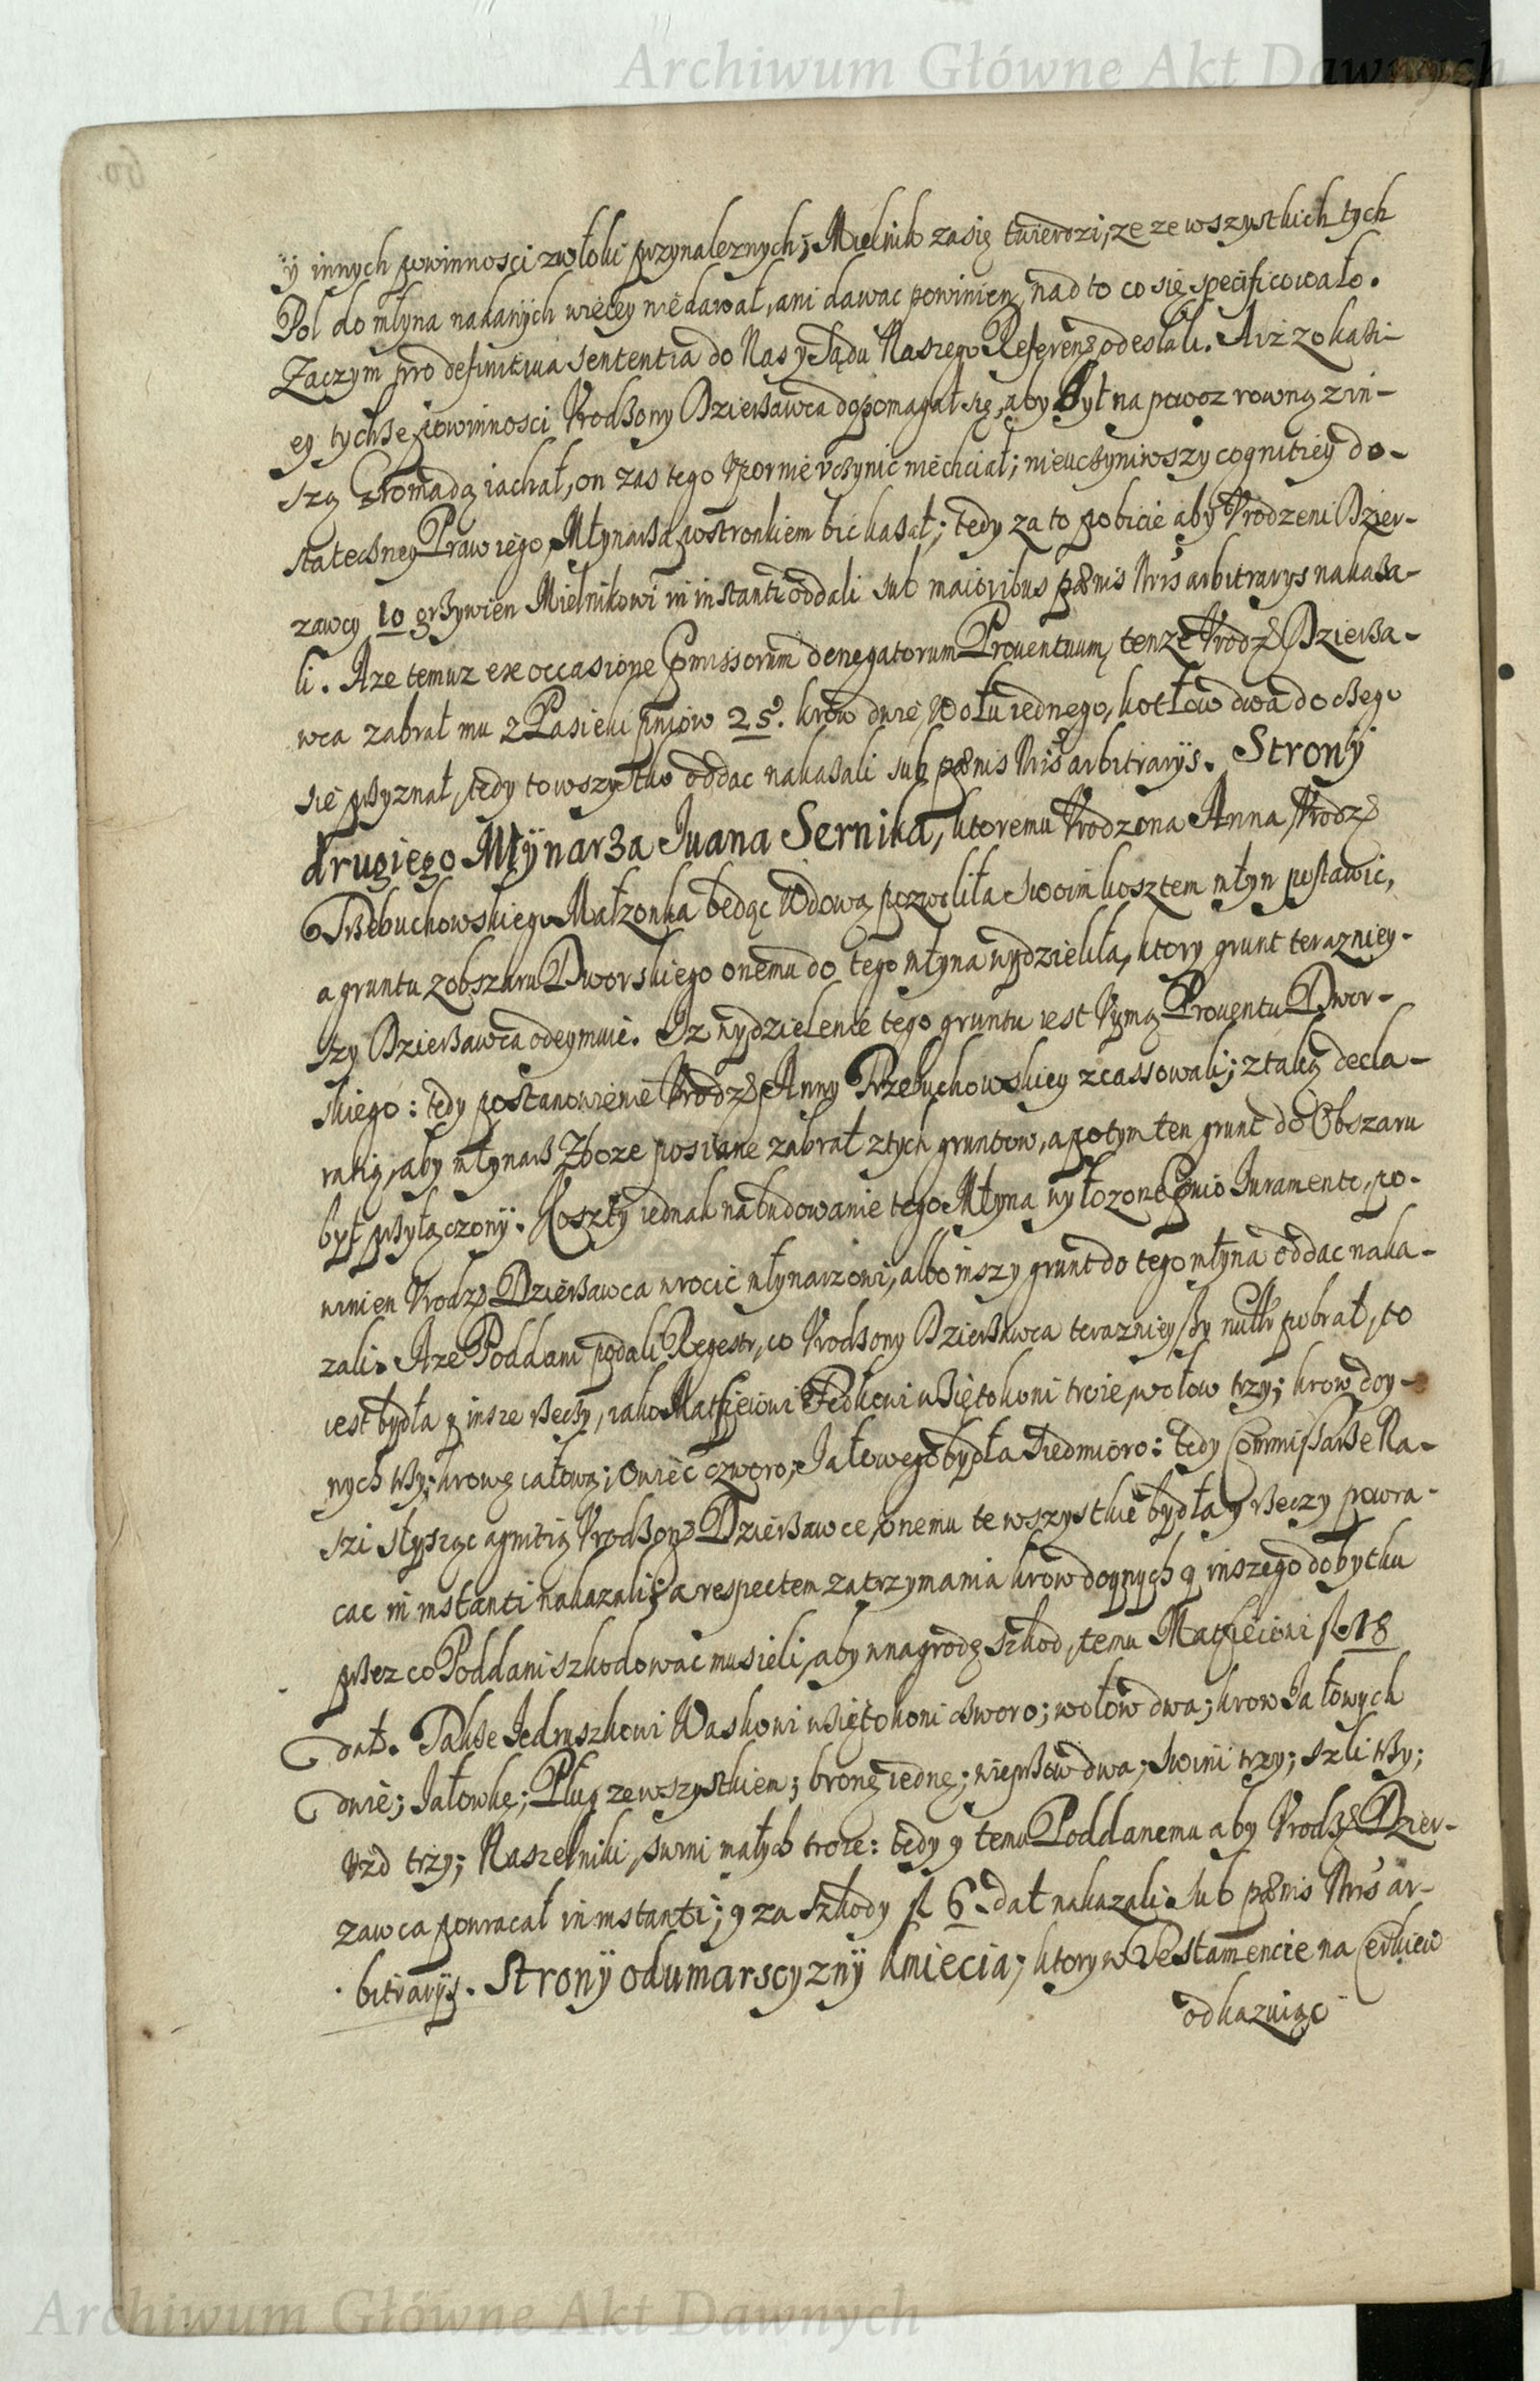 Archiwum Główne Akt Dawnych
60.
y innych powinnosci zwłoki przynaleznych; Mielnik zasię twierdzi, ze ze wszystkich tych
Pol do młyna nadanÿch więcey nie dawał, ani dawac powinien, nad to co się specificowało.
Zaczym pro definitiua sententia do Nas y Sądu Naszego Referen: odesłali. A iz z okaßi-
ey tychße powinnosci Vrodßony Dzierßawca dopomagał się, aby był na powoz rowną z in-
szą Gromadą iachał, on zas tego Vpornie vczynic niechciał; nieuczyniwszy cognitiey do-
stateczney Praw iego, Młynarßa postronkiem bic kaßał; tedy za to pobicie aby Vrodzeni Dzier-
zawcy 10 grßywien Mielnikowi in instanti oddali sub maioribus pœnis Nris arbitrarys nakaßa-
li. A ze temuz ex occasione Comissorum denegatorum Prouentuum, tenze Vrodz: Dzierßa-
wca zabrał mu z Pasieki pniow 25. krow dwie, Wołu iednego, kotłow dwa do czego
się przyznał, tedy to wszystko oddac nakaßali sub pœnis Nris arbitrarÿs. Stronÿ
drugiego Młÿnarza Iwana Sernika, ktoremu Vrodzona Anna Vrodz:
Trzebuchowskiego Małzonka będąc Wdową pozwoliła swoim kosztem młyn postawic,
a gruntu z obszaru Dworskiego onemu do tego młyna wydzieliła, ktory grunt terazniey-
szy Dzierßawca odeymuie. Iz wydzielenie tego gruntu iest Vymą Prouentu Dwor-
skiego: tedy postanowienie Vrodz: Anny Trzebuchowskiey zcassowali; z taką decla-
ratią, aby młynarz Zboze posiane zabrał z tych gruntow, a potym ten grunt do Obszaru
był przyłączonÿ. Koszty iednak na budowanie tego Młyna wyłozone Ipsius Iuramento, po-
winien Vrodz: Dzierßawca wrocic młynarzowi, albo inszy grunt do tego młyna oddac naka-
zali. A ze Poddani podali Regestr, co Vrodßony Dzierßawca terazniejßy pobrał, to
iest bydła y insze rzeczy, iako Matfieiowi Fedkowi wßięto koni troie, wołow trzy; krow doy-
nych trzy; krowę iałową; owiec czworo, Iałowego bydła siedmioro: tedy Commißarße Na-
szi słysząc agnitią Vrodßon: Dzierßawce, onemu te wszystkie bydła y rzeczy powra-
cac in instanti nakazali; a respectem zatrzymania krow doynych y inszego dobytku
przez co Poddani szkodowac musieli, aby w nagrodę szkod, temu Matfieiowi fl. 18
dał. Takße Iedruszkowi Waskowi wßięto koni czworo; wołow dwa; krow Iałowych
dwie; Iałowkę; Pług ze wszystkiem; bronę iednę; wieprzow dwa; swini trzy; szli trzy;
Vzd trzy; Naszelniki, swini małych troie: tedy y temu Poddanemu aby Vrodz: Dzier-
zawca powracał in instanti; y za szkody fl 6. dał nakazali sub pœnis Nris ar-
bitrarÿs. Stronÿ odumarscyznÿ kmiecia; ktory w Testamencie na Cerkiew
odkazuiąc
Archiwum Główne Akt Dawnych